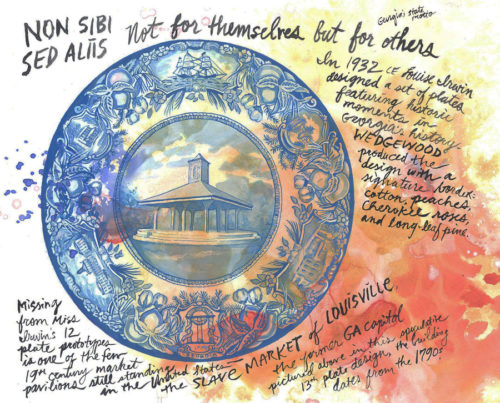 NON SIBI
SED ALIIS
Not for themselves but for others
Georgia's state motto
In 1932 CE Louise Irwin
designed a set of plates
featuring historic
moments in
Georgia's history
WEDGEWOOD
produced the
design with a
signature border:
cotton, peaches,
Cherokee roses,
and long leaf pine.
Missing
from Miss
Irwin's 12
plate prototypes
is one of the few
19th century market
pavilions still standing
in the United States
the SLAVE MARKET of LOUISVILLE,
the former GA capitol
pictured above in this speculative
13th plate design. the building
dates from the 1790s